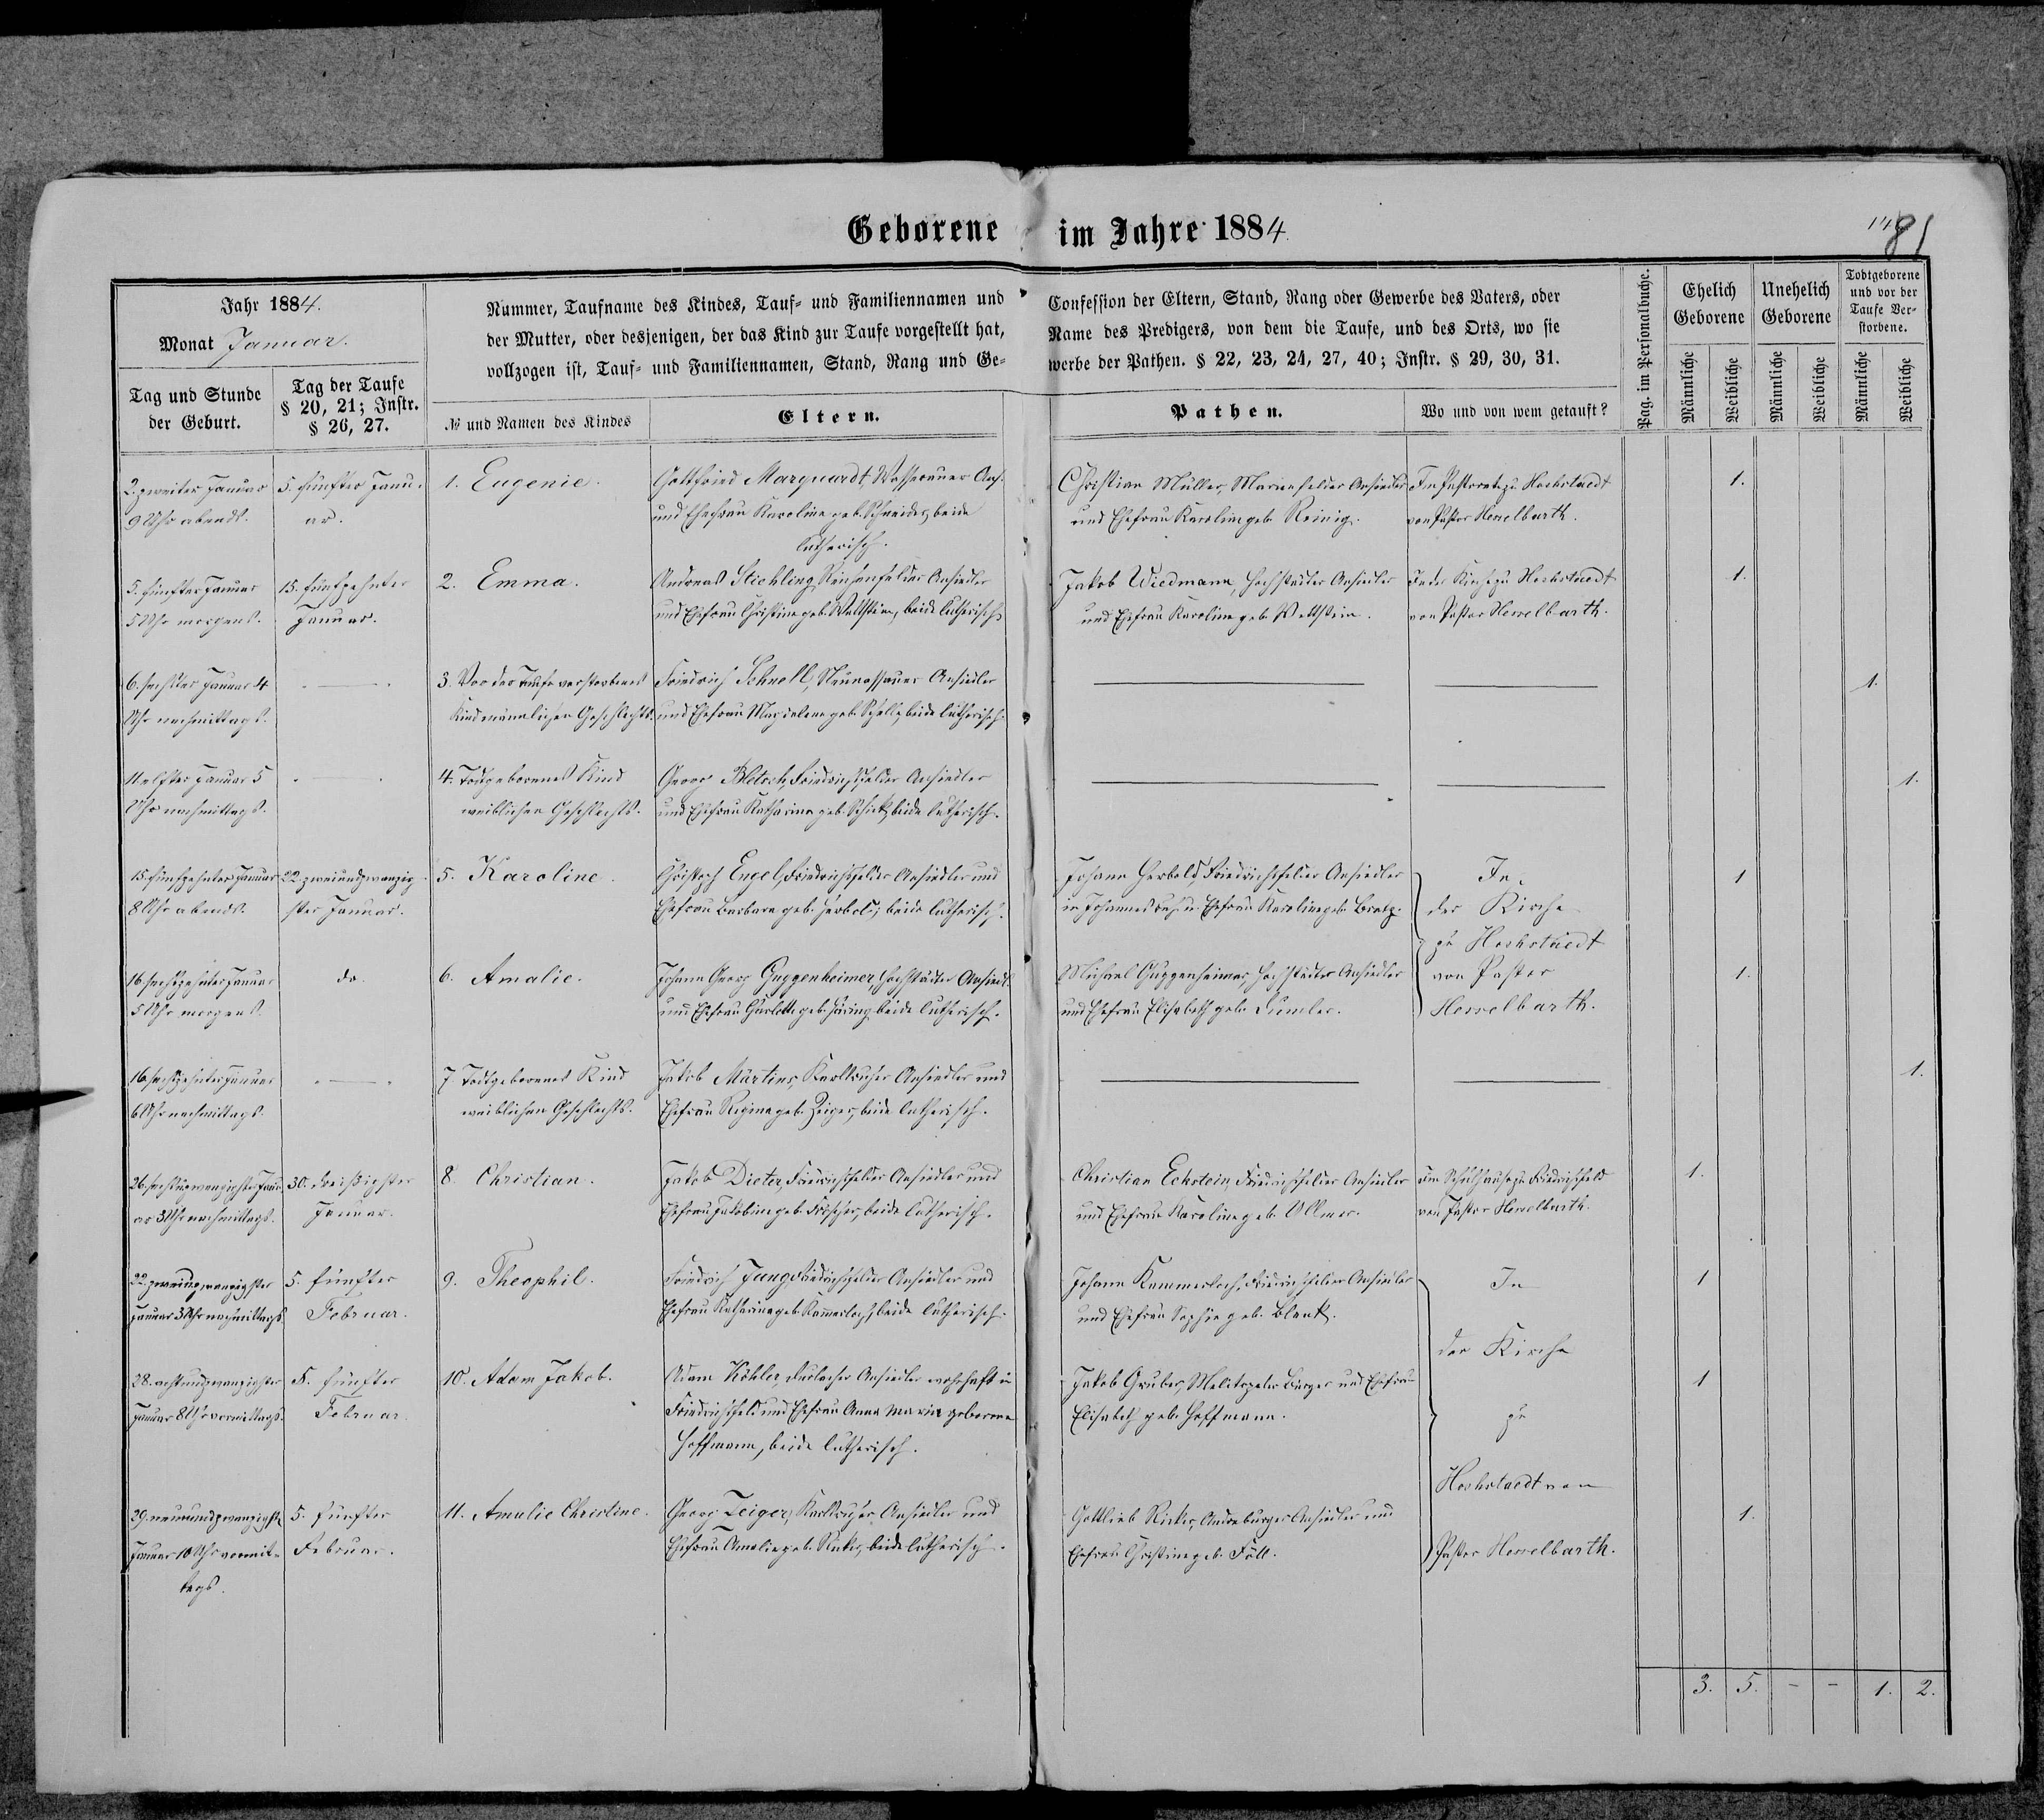 Geborene im Jahre 1884.
81
Jahr 1884.
Monat Januar.
Tag und Stunde
der Geburt.
Tag der Taufe
§ 20, 21; Instr.
§ 26, 27.
Nummer, Taufname des Kindes, Tauf- und Familiennamen und
der Mutter, oder desjenigen, der das Kind zur Taufe vorgestellt hat,
vollzogen ist, Tauf- und Familiennamen, Stand, Rang und Ge-
№ und Namen des Kindes
Eltern.
Confession der Eltern, Stand, Rang oder Gewerbe des Vaters, oder
Name des Predigers, von dem die Taufe, und des Orts, wo sie
werbe der Pathen. § 22, 23, 24, 27, 40; Instr. § 29, 30, 31.
Pathen.
Wo und von wem getauft?
Pag. im Personalbuche.
Ehelich
Geborene
Unehelich
Geborene
Todtgeborene
und vor der
Taufe Ver-
storbene.
Männliche
Weibliche
Männliche
Weibliche
Männliche
Weibliche
2. zweiter Januar
9 Uhr abends.
5. fünfter Janu-
ar.
1. Eugenie.
Gottfried Marquardt, Wasserauer Ans.
und Ehefrau Karoline geb. Schneider, beide
lutherisch.
Christian Müller, Marienfelder Ansiedler
und Ehefrau Karoline geb. Reinig.
Im Pastorate zu Hochstaedt
von Pastor Hesselbarth.
1.
5. fünfter Januar
5 Uhr morgens.
15. fünfzehnter
Januar.
2. Emma.
Andreas Stichling, Reichenfelder Ansiedler
und Ehefrau Christine geb. Wettstein, beide lutherisch.
Jakob Wiedmann, Hochstädter Ansiedler
und Ehefrau Karoline geb. Wettstein.
In der Kirche zu Hochstaedt
von Pastor Hesselbarth.
1.
6. sechster Januar 4
Uhr nachmittags.
3. Vor der Taufe verstorbenes
Kind männlichen Geschlechts.
Friedrich Schnell, Neunassauer Ansiedler
und Ehefrau Magdalena geb. Schell, beide lutherisch.
1.
11. elfter Januar 5
Uhr nachmittags.
4. Todtgeborenes Kind
weiblichen Geschlechts.
Georg Bletsch, Friedrichsfelder Ansiedler
und Ehefrau Katharina geb. Schick, beide lutherisch.
1.
15. fünfzehnter Januar
8 Uhr abends.
22. zweiundzwanzig-
ster Januar.
5. Karoline.
Christoph Engel, Friedrichsfelder Ansiedler und
Ehefrau Barbara geb. Herbold, beide lutherisch.
Johann Herbold, Friedrichsfelder Ansiedler
in Johannesruh u. Ehefrau Karoline geb. Bratz.
In
der Kirche
zu Hochstaedt
von Pastor
Hesselbarth.
1
16. sechszehnter Januar
5 Uhr morgens.
do.
6. Amalie.
Johann Georg Guggenheimer, Hochstädter Ansiedl.
und Ehefrau Charlotte geb. Häring, beide lutherisch.
Michael Guggenheimer, Hochstädter Ansiedler
und Ehefrau Elisabeth geb. Kumler.
1.
16. sechszehnter Januar
6 Uhr nachmittags.
7 Todtgeborenes Kind
weiblichen Geschlechts.
Jakob Martins, Karlsruher Ansiedler und
Ehefrau Regina geb. Zeiger, beide lutherisch.
1.
26. sechsundzwanzigster Janu-
ar 3 Uhr nachmittags.
30. dreißigster
Januar.
8. Christian.
Jakob Dieter, Friedrichsfelder Ansiedler und
Ehefrau Jakobine geb. Fröscher, beide lutherisch.
Christian Eckstein, Friedrichsfelder Ansiedler
und Ehefrau Karoline geb. Ollmer.
Im Schulhause zu Friedrichsfeld
von Pastor Hesselbarth.
1.
22. zweiundzwanzigster
Januar 3 Uhr nachmittags
5. fünfter
Februar.
9. Theophil.
Friedrich Jung, Friedrichsfelder Ansiedler und
Ehefrau Katharina geb. Kammerloch, beide lutherisch.
Johann Kammerloch, Friedrichsfelder Ansiedler
und Ehefrau Sophie geb. Blank.
In
der Kirche
zu
Hochstaedt von
Pastor Hesselbarth.
1
28. achtundzwanzigster
Januar 8 Uhr vormittags.
5. fünfter
Februar.
10. Adam Jakob.
Adam Köhler, Durlacher Ansiedler wohnhaft in
Friedrichsfeld und Ehefrau Anna Maria geborene
Hoffmann, beide lutherisch.
Jakob Gruber, Melitopoler Bürger und Ehefrau
Elisabeth geb. Hoffmann.
1
29. neunundzwanzigst.
Januar 10 Uhr vormit-
tags.
5. fünfter
Februar.
11. Amalie Christine.
Georg Zeiger, Karlsruher Ansiedler und
Ehefrau Amalie geb. Ricker, beide lutherisch.
Gottlieb Ricker, Andreburger Ansiedler und
Ehefrau Christine geb. Föll.
1.
3. 5. - - 1. 2.